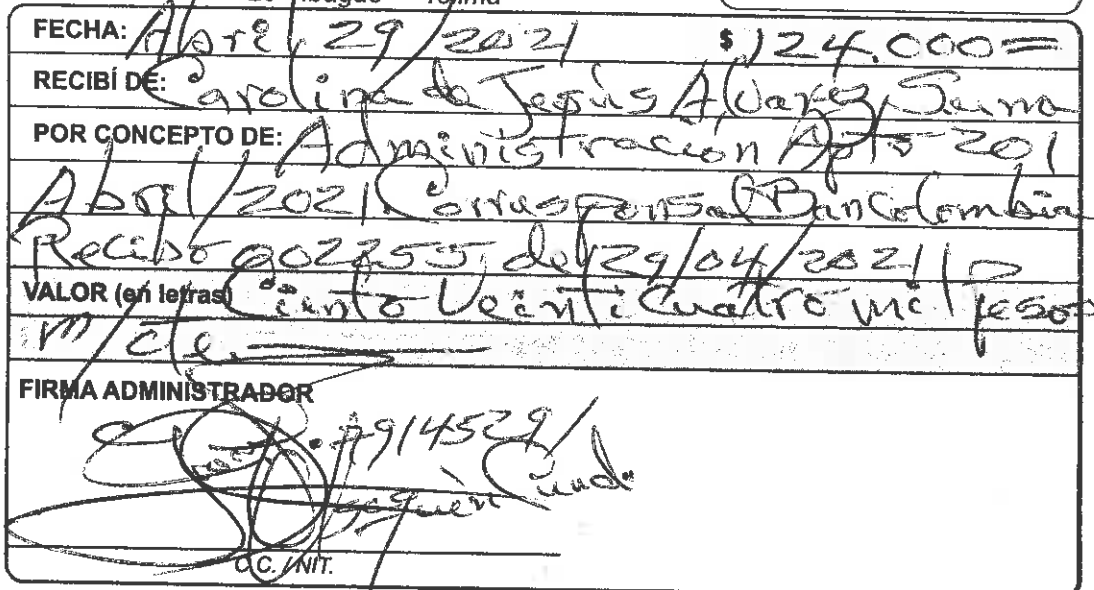 Ibagué Tolima
FECHA: Abril 29/2021 $ 124.000=
RECIBÍ DE: Carolina de Jesús Alvarez Serna
POR CONCEPTO DE: Administración Apto 201
Abril/2021 Corresponsal BanColombia
Recibo 902255, del 29/04/2021
VALOR (en letras) Ciento Veinti Cuatro mil pesos
m/cte
FIRMA ADMINISTRADOR
C.C. / NIT.